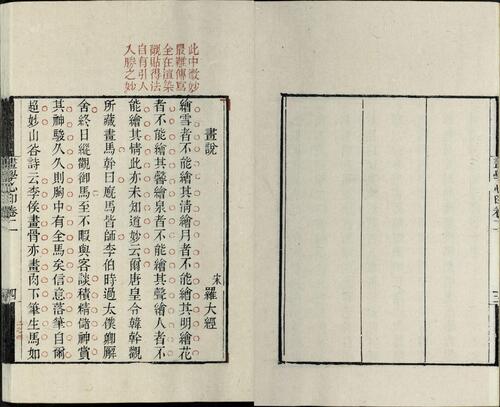 此中微妙
最難傳寫
全在渲染
襯貼得法
自有引人
入勝之妙
畫說
宋 羅大經
繪雪者不能繪其清繪月者不能繪其明繪花
者不能繪其馨繪泉者不能繪其聲繪人者不
能繪其情此亦未知道妙云爾唐皇令韓幹觀
所藏畫馬幹曰廄馬皆師李伯時過太僕卿廨
舍終日縱觀御馬至不暇與客談積精儲神賞
其神駿久久則胸中有全馬矣信意落筆自爾
超妙山谷詩云李侯畫骨亦畫肉下筆生馬如
畫學心印卷
四